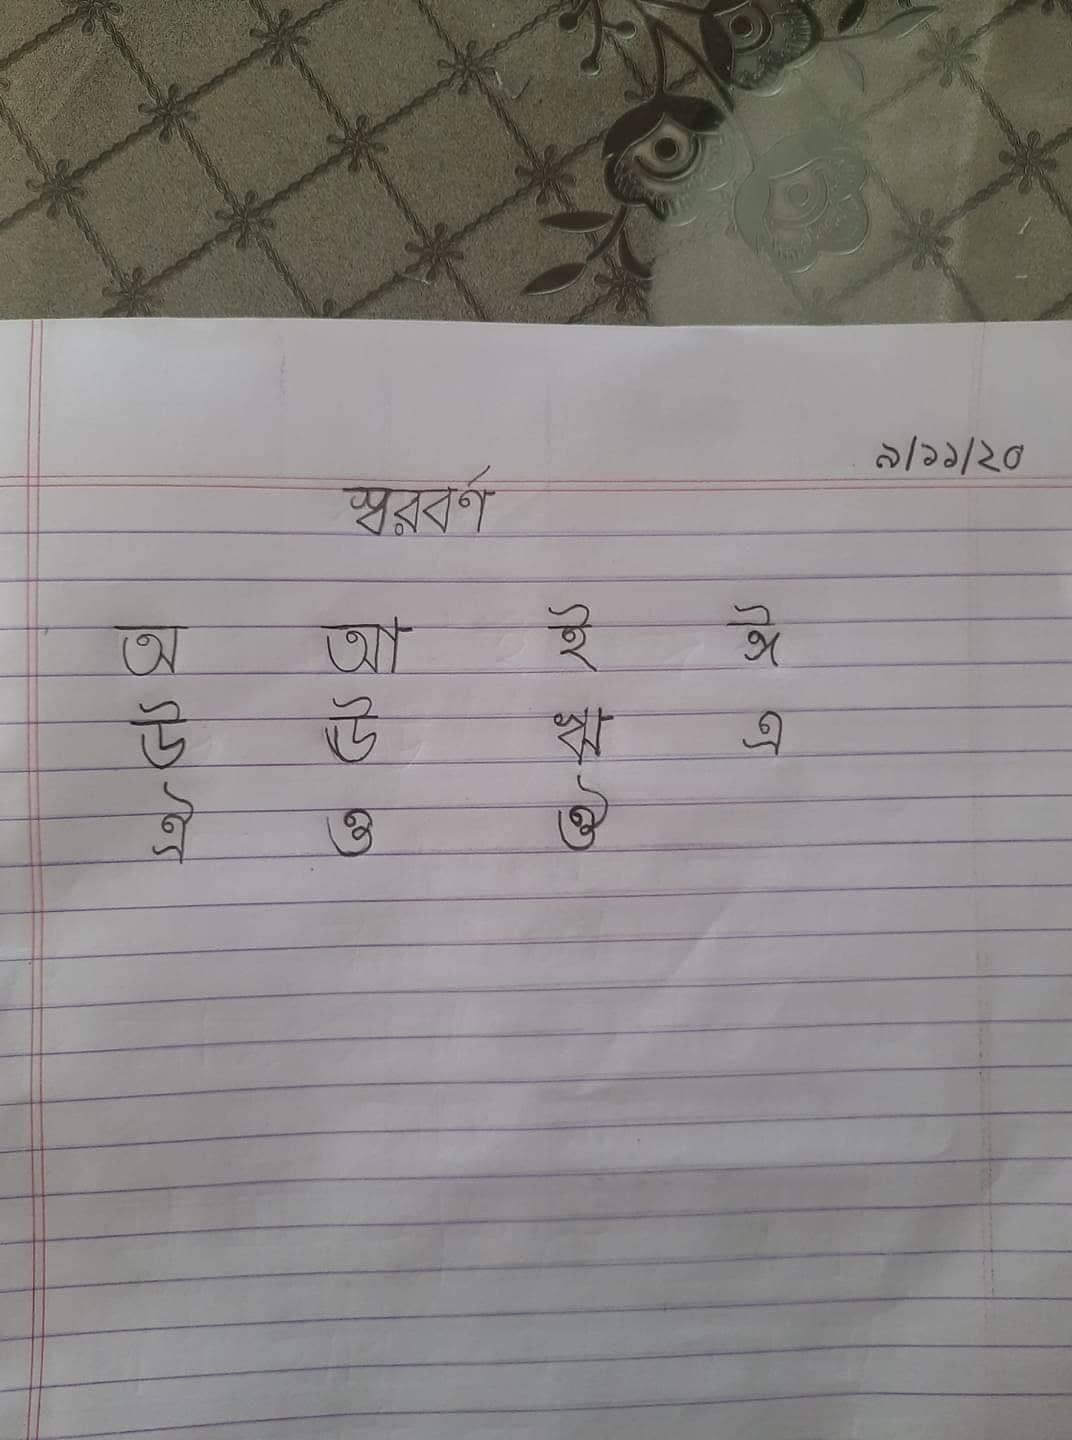 ৯/১১/২০
স্বরবর্ণ
অ আ ই ঈ
উ ঊ ঋ এ
ঐ ও ঔ